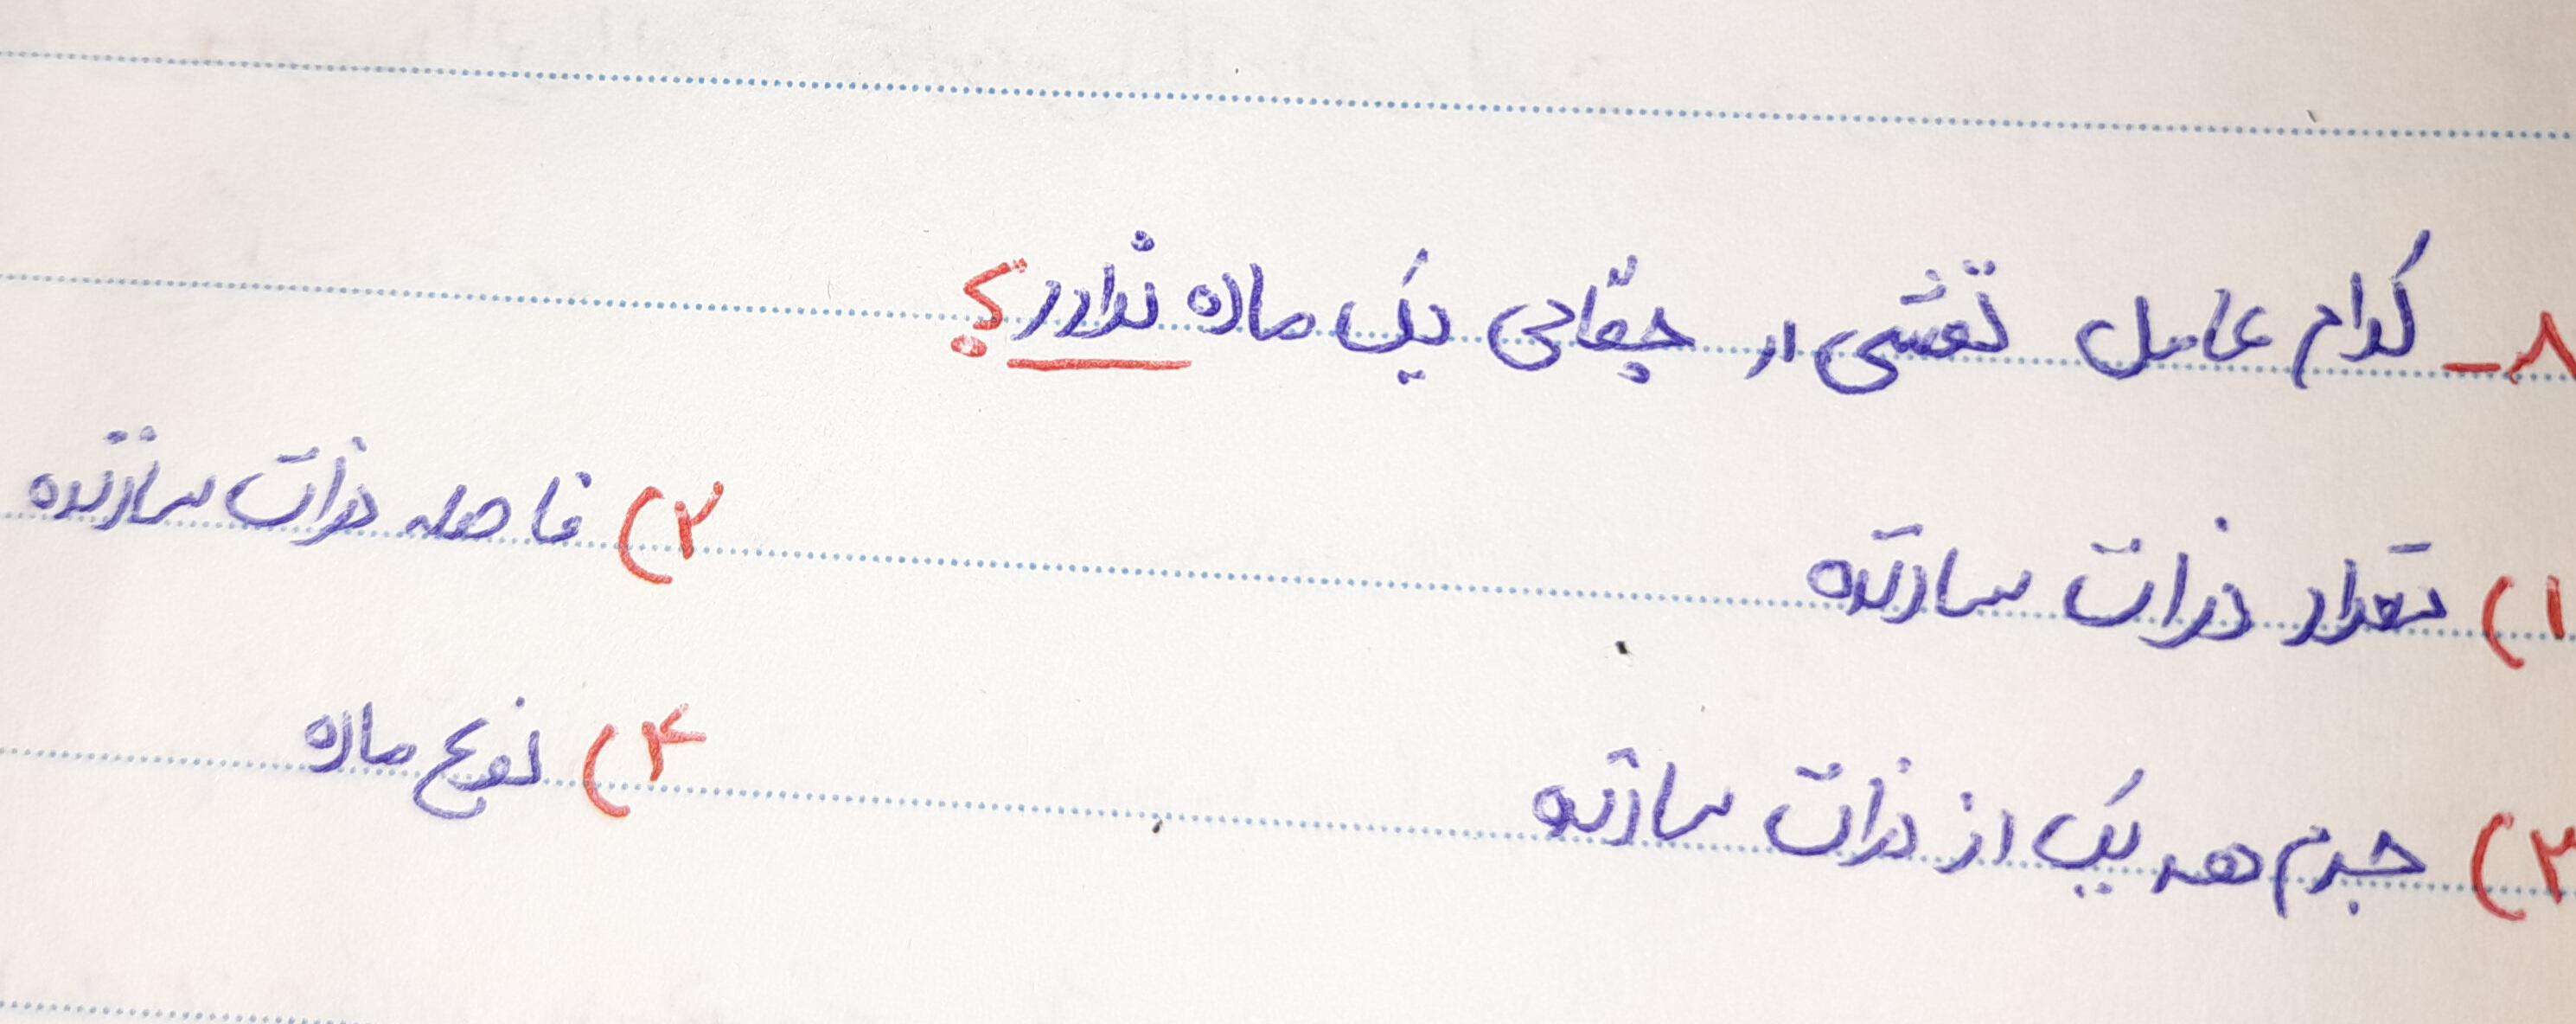 ۸- کدام عامل نقشی در چگالی یک ماده ندارد؟
۱) تعداد ذرات سازنده ۲) فاصله ذرات سازنده
۳) جرم هر یک از ذرات سازنده ۴) نوع ماده